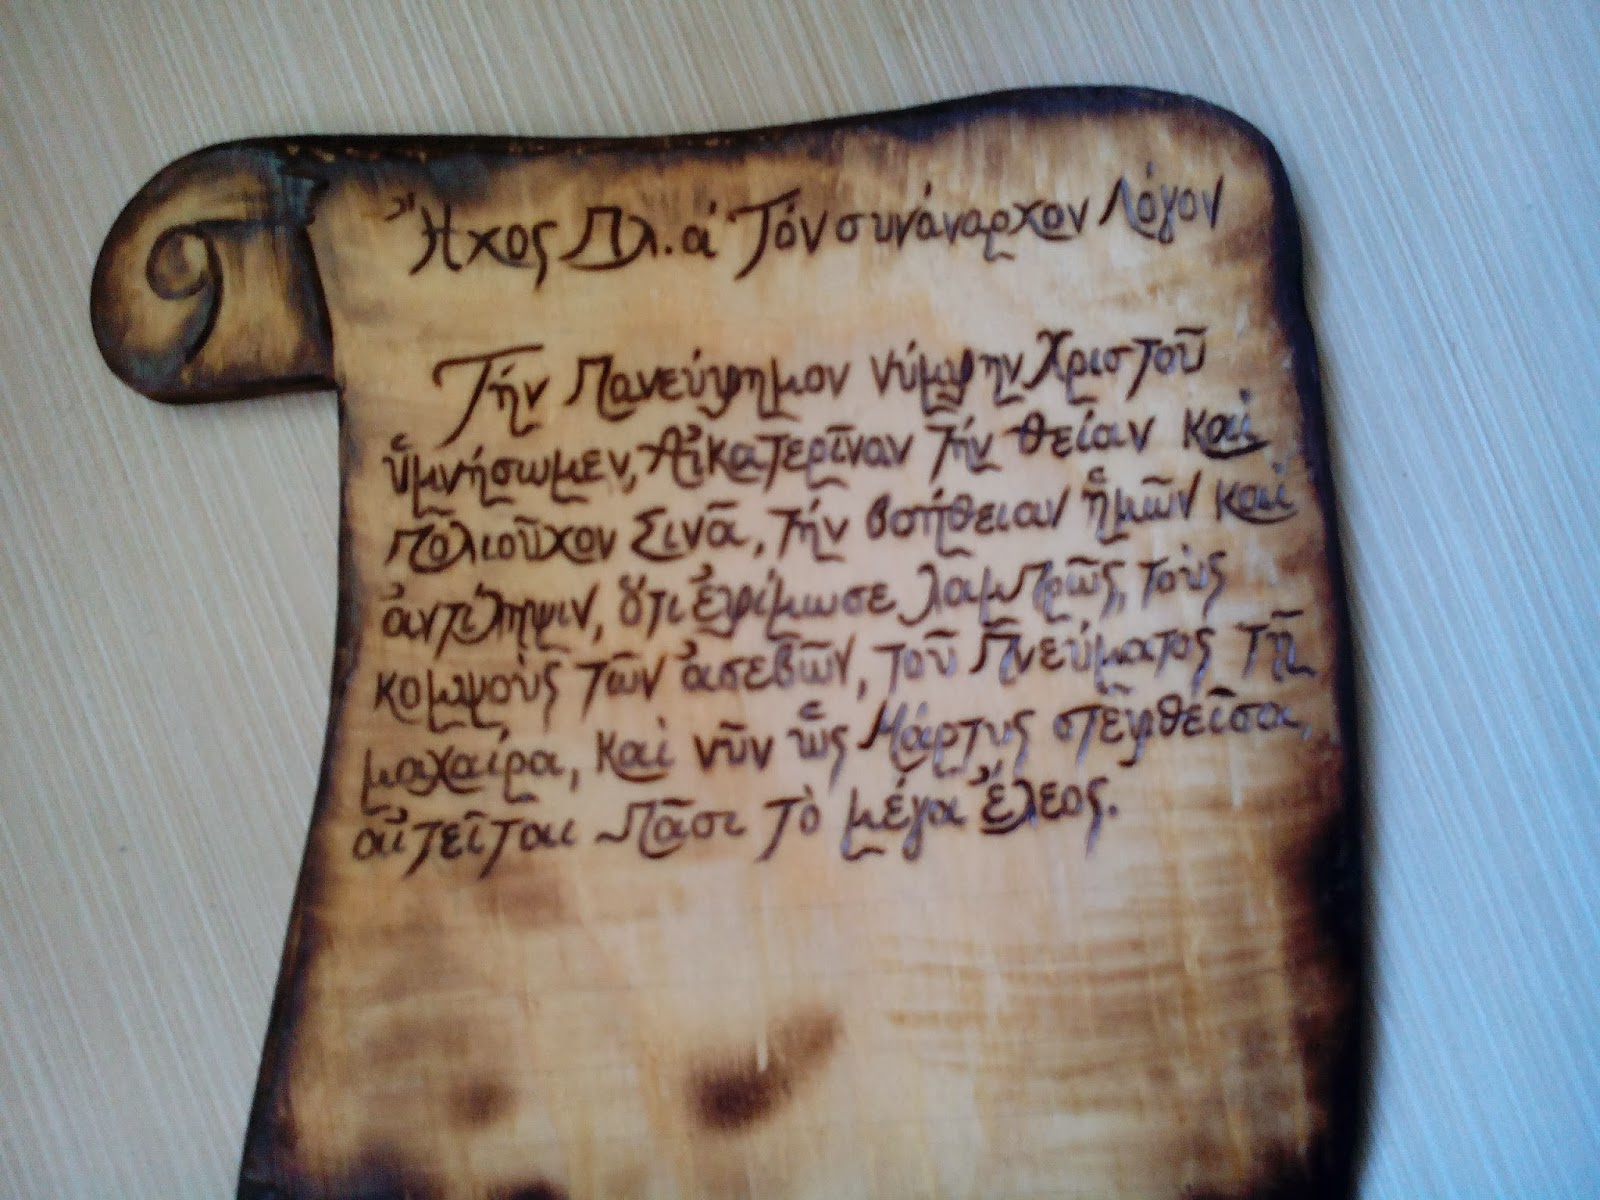 Ἦχος Πλ. ά Τόν συνάναρχον Λόγον
Τήν Πανεύφημον νύμφην Χριστοῦ
ὕμνήσωμεν, Αἰκατερῖναν τήν θείαν καί
Πολιοῦχον Σινᾶ, τήν βοήθειαν ἡμῶν καί
ἀντίληψιν, ὅτι ἐφίμωσε λαμπρῶς, τούς
κομψούς τῶν ἀσεβῶν, τοῦ Πνεύματος τῇ
μαχαίρα, καί νῦν ὡς Μάρτυς στεφθεῖσα,
αἰτεῖται πᾶσι τὸ μέγα ἔλεος.